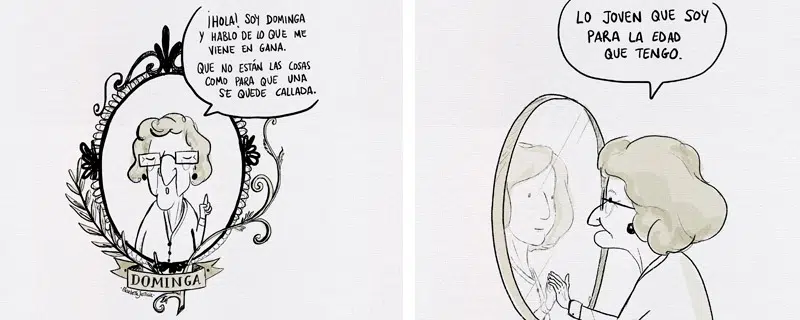 ¡HOLA! SOY DOMINGA
Y HABLO DE LO QUE ME
VIENE EN GANA.
QUE NO ESTÁN LAS COSAS
COMO PARA QUE UNA
SE QUEDE CALLADA.
DOMINGA
LO JOVEN QUE SOY
PARA LA EDAD
QUE TENGO.